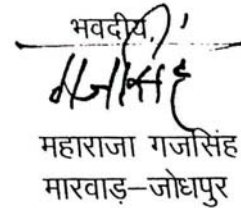 भवदीय,
गजसिंह
महाराजा गजसिंह
मारवाड़–जोधपुर